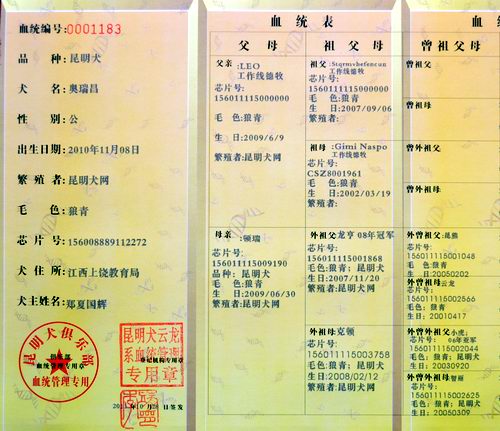 血统编号:0001183
品 种:昆明犬
犬 名:奥瑞昌
性 别:公
出生日期:2010年11月08日
繁殖者:昆明犬网
毛 色:狼青
芯片号:156008889112272
犬住所:江西上饶教育局
犬主姓名:郑夏国辉
昆明犬俱乐部
血统管理专用
昆明犬云龙
系血统管理
登记机构专用章
专用章
血统表
父母
父亲:LEO
工作线德牧
芯片号:
156011115000000
毛 色:狼青
生 日:2009/6/9
繁殖者:昆明犬网
母亲:顿瑞
芯片号:
156011115009190
品种:昆明犬
毛 色:狼青
生 日:2009/06/30
繁殖者:昆明犬网
祖父母
祖父:
工作线德牧
芯片号:
156011115000000
生 日:2007/09/06
毛 色:狼青
繁殖者:
祖母:Gimi Naspo
工作线德牧
芯片号:
CSZ8001961
毛 色:狼青
生 日:2002/03/19
繁殖者:
外祖父龙亨 08年冠军
芯片号:
156011115001868
毛 色:狼青
生 日:2007/11/20
繁殖者:昆明犬网
外祖母克顿
芯片号:
156011115003758
毛 色:狼青
生 日:2008/02/12
繁殖者:昆明犬网
血统
曾祖父母
曾祖父
曾祖母
曾外祖父
曾外祖母
外曾祖父:昆熊
芯片号:
156011115001048
毛 色:狼青
生 日:20050202
外曾祖母云龙
芯片号:
156011115002566
毛 色:狼青
生 日:20010417
外曾外祖父小虎;
芯片号: 06年亚军
156011115002044
毛色:狼青;昆明犬
生 日:20030920
外曾外祖母
芯片号:
156011115002625
毛色:狼青;昆明犬
生 日:20050309